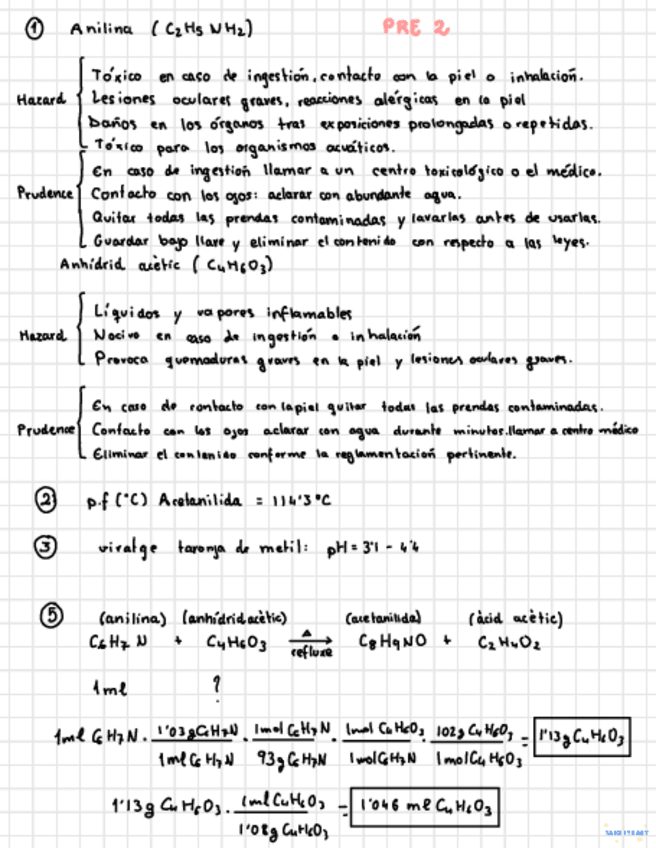 ① Anilina (C2H5 NH2) PRE 2
Hazard
Tóxico en caso de ingestión, contacto con la piel o inhalación.
Lesiones oculares graves, reacciones alérgicas en la piel
Daños en los órganos tras exposiciones prolongadas o repetidas.
Tóxico para los organismos acuáticos.
Prudence
En caso de ingestión llamar a un centro toxicológico o el médico.
Contacto con los ojos: aclarar con abundante agua.
Quitar todas las prendas contaminadas y lavarlas antes de usarlas.
Guardar bajo llave y eliminar el contenido con respecto a las leyes.
Anhídrid acètic (C4H6O3)
Hazard
Líquidos y vapores inflamables
Nocivo en caso de ingestión o inhalación
Provoca quemaduras graves en la piel y lesiones oculares graves.
Prudence
En caso de contacto con la piel quitar todas las prendas contaminadas.
Contacto con los ojos aclarar con agua durante minutos. llamar a centro médico
Eliminar el contenido conforme la reglamentación pertinente.
② p.f (°C) Acetanilida = 114'3°C
③ viratge taronja de metil: pH = 3'1 - 4'4
⑤ (anilina) (anhídrid acètic) (acetanilida) (àcid acètic)
C6H7N + C4H6O3 →Δ reflux C8H9NO + C2H4O2
1ml ?
1ml C6H7N · 1'03g C6H7N / 1ml C6H7N · 1mol C6H7N / 93g C6H7N · 1mol C4H6O3 / 1mol C6H7N · 102g C4H6O3 / 1mol C4H6O3 = 1'13g C4H6O3
1'13g C4H6O3 · 1ml C4H6O3 / 1'08g C4H6O3 = 1'046 ml C4H6O3